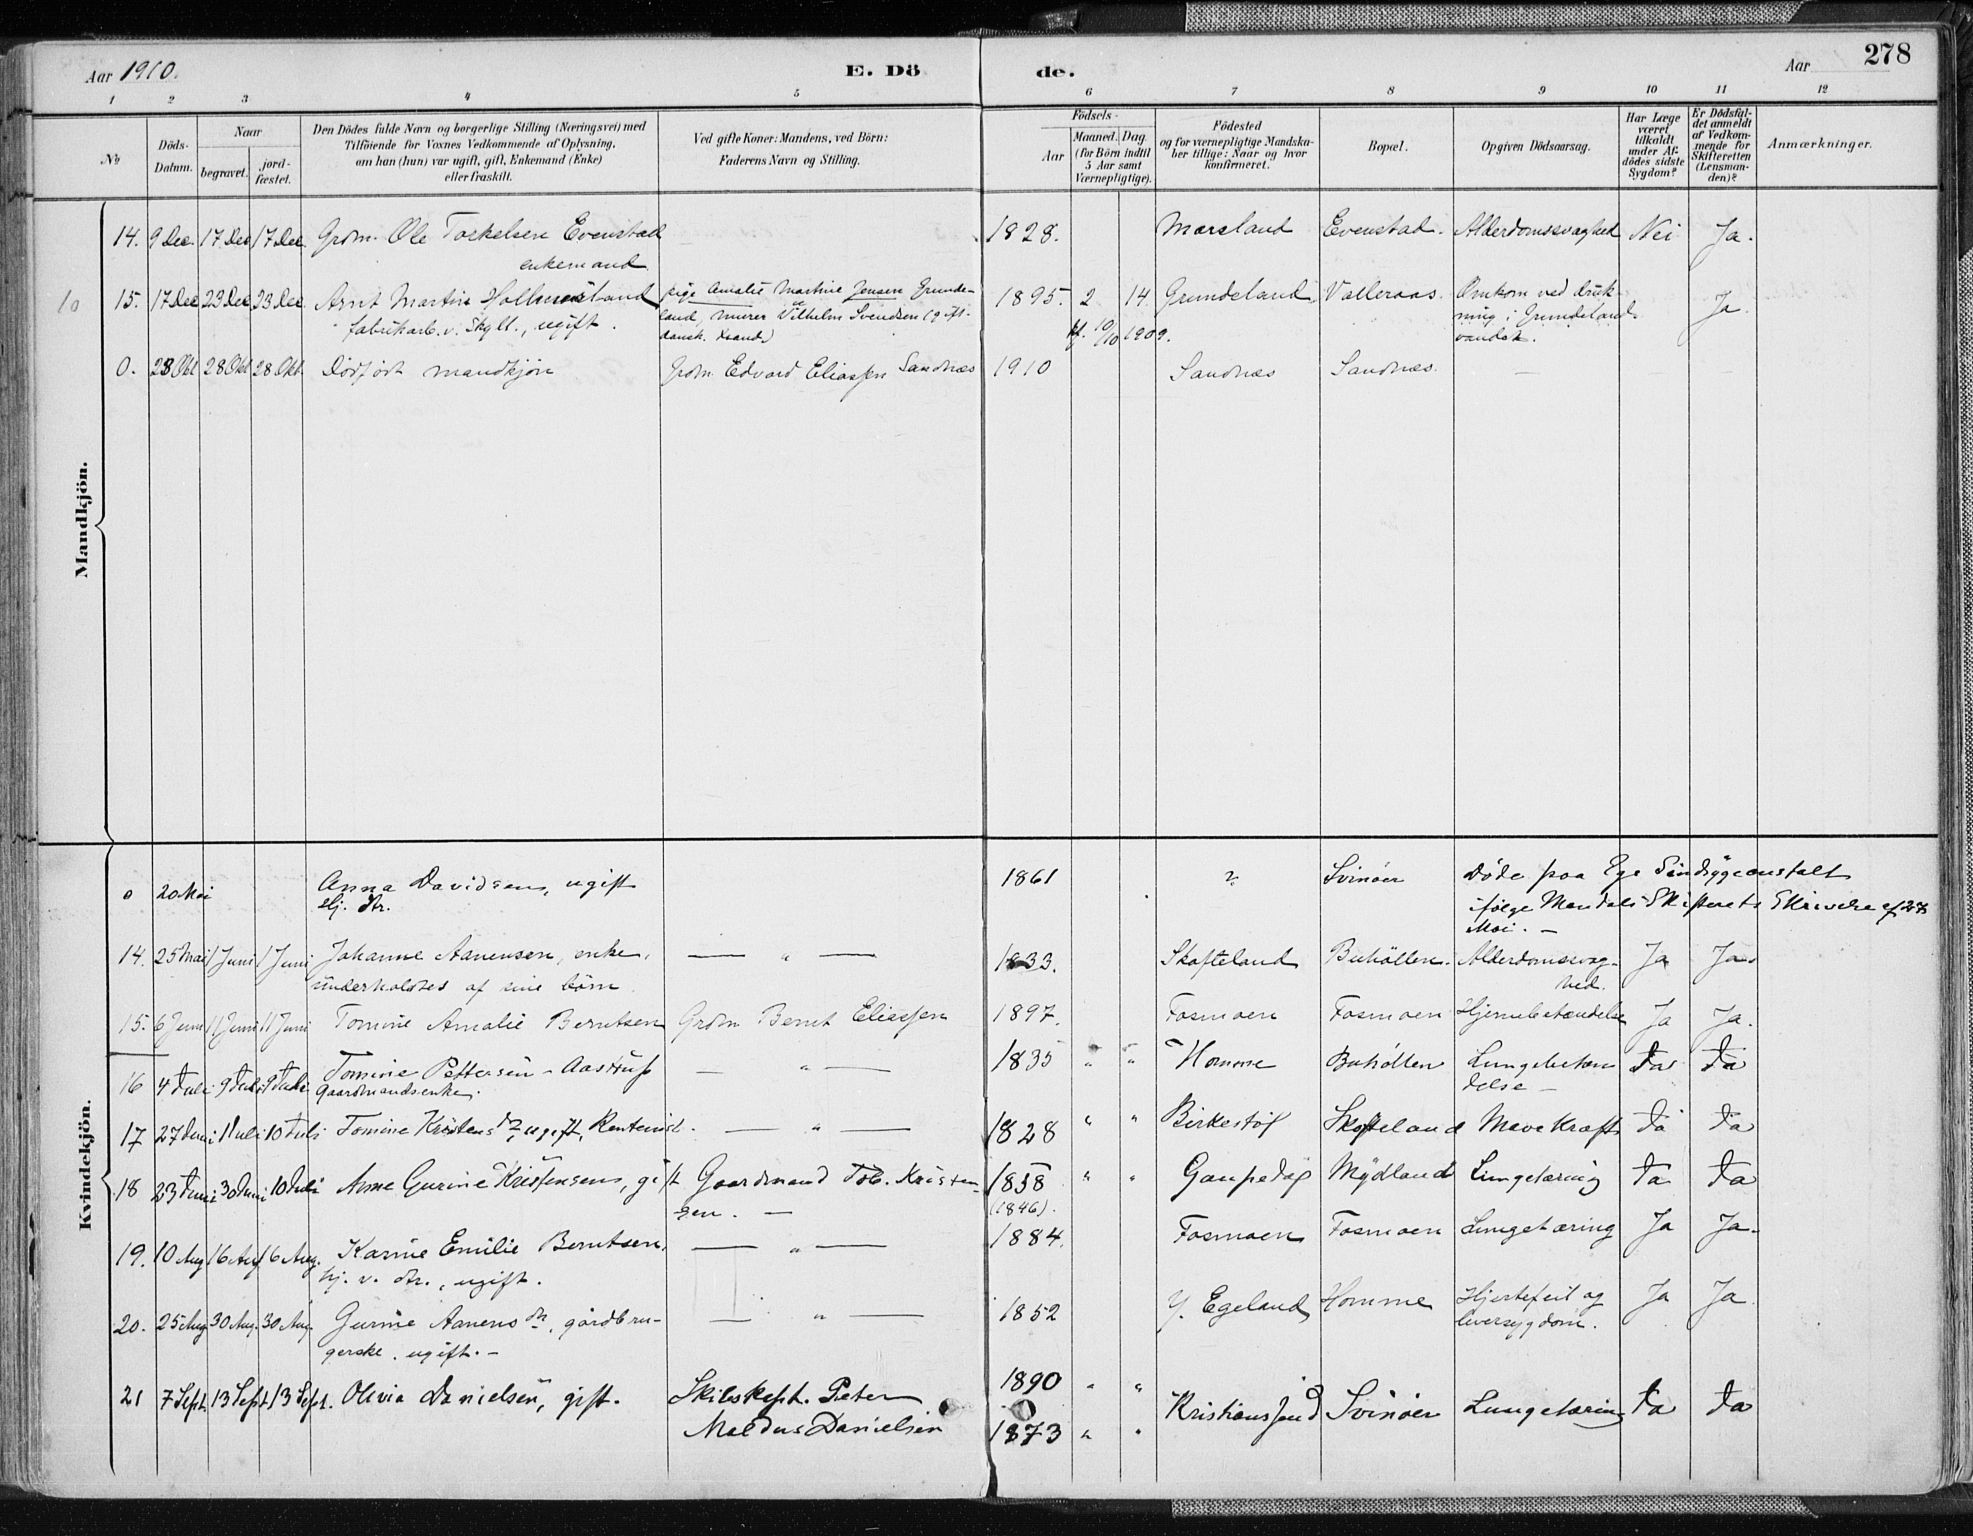 Aar 1910. E. Dö de. Aar 278
1 2 3 4 5 6 7 8 9 10 11 12
№ Döds-Datum. Naar begravet. jordfæstet. Den Dödes fulde Navn og borgerlige Stilling (Næringsvei) med Tilföiende for Voxnes Vedkommende af Oplysning, om han (hun) var ugift, gift, Enkemand (Enke) eller fraskilt. Ved gifte Koner: Mandens, ved Börn: Faderens Navn og Stilling. Födsels- Aar Maaned. Dag. (for Börn indtil 5 Aar samt Værnepligtige). Födested og for værnepligtige Mandskaber tillige: Naar og hvor konfirmeret. Bopæl. Opgiven Dödsaarsag. Har Læge været tilkaldt under Afdödes sidste Sygdom? Er Dödsfaldet anmeldt af Vedkommende for Skifteretten (Lensmanden)? Anmærkninger.
Mandkjön.
14. 9 Dec. 17 Dec 17 Dec. Grdm. Ole Torkelsen Evenstad 1828. Marsland Evenstad. Alderdomssvaghed Nei Ja.
enkemand
10 15. 17 Dec 23 Dec 23 Dec. Arnt Martin Holumsland pige Amalie Martine Jensen Grunde- 1895. 2 14. Grundeland Valleraas. Omkom ved druk- Ja
fabrikarb. v. Skyll., ugift. land, murer Vilhelm Svendsen (gift- ning i Grundelands
dansk. mand) kf. 10/10 1909. vandet.
0. 28 Okt 28 Okt 28 Okt. Dödfödt mandkjön Grdm. Edvard Eliassen Sandnæs 1910 Sandnæs Sandnæs. —
Kvindekjön.
0 20 Mai Anna Davidsen, ugift 1861 ? Svinöer Döde paa Eg Sindsygeanstalt
tlj. dtr. ifølge Mandals Skifterets Skrivelse af 28
Mai. —
14. 25 Mai 1 Juni 1 Juni Johanne Aanensen, enke, — " — 1833. Skofteland Buhölten. Alderdomssvag- Ja Ja.
underholdtes af sine börn. hed.
15. 6 Juni 11 Juni 11 Juni Tomine Amalie Berntsen Grdm Bernt Eliassen 1897. Fosmoen Fosmoen Hjernebetændelse Ja Ja.
16 4 Juli 9 Juli 9 Juli Tomine Pettersen - Aastrup — " — 1835 " " Homme Buhölten Lungebetæn Ja Ja
Gaardmandsenke. delse —
17 27 Juni 1 Juli 10 Juli Tomine Kristensd?, ugift, Rentenist. — " — 1828 " " Birkestöl Skofteland Mavekræft Ja Ja
18 23 Juni 30 Juni 10 Juli Anne Gurine Kristensen, gift Gaardmand Tob. Kristen- 1858 " " Gaupedal Mydland Lungetæring Ja Ja
sen. — (1846).
19. 10 Aug 16 Aug 16 Aug. Karine Emilie Berntsen, — " — 1884. Fosmoen Fosmoen Lungetæring Ja Ja.
hj. v. dtr., ugift.
20. 25 Aug 30 Aug. 30 Aug. Gurine Aanensdtr, gårdbru- — " — 1852 Y. Egeland Homme Hjertefeil og Ja Ja
gerske. ugift. — leversygdom.
21 7 Sept. 13 Sept 13 Sept. Olivia Danielsen, gift. Skibskapt. Peter 1890 " " Kristianssund Svinöer Lungetæring Ja Ja
Maldus Danielsen 1873 " "